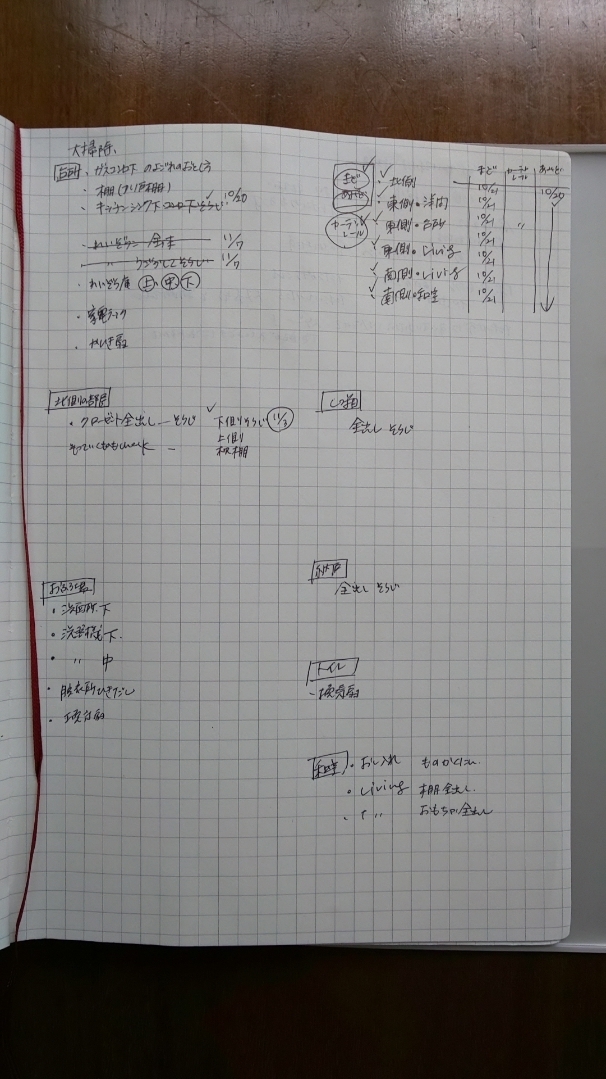 大掃除、
台所 ガスコンロ下 のよごれのおとし方
・棚(つり戸棚)
・キッチンシンク下コンロ下そうじ ✓ 10/20
れいぞうこ 全出 11/7
そうじ 11/7
・れいぞう庫 上、中、下
・家電ラック
・かんき扇
まど あみど
まど カーテンレール あみど
カーテンレール
✓北側 10/21 10/20
✓東側・洋間 10/21
✓東側・台所 10/21 〃
✓東側・Living 10/21
✓南側・Living 10/21
✓南側・和室 10/21
北側の部屋
・クローゼット全出し そうじ ✓ 下側りそうじ 11/3
上側り
check
全出し そうじ
納戸
全出し そうじ
おふろ場
・洗面所下
・洗濯機下
・〃 中
・脱衣所ひきだし
・換気扇
トイレ
・換気扇
和室 ・おし入れ
・Living 棚全出し
・〃 おもちゃ全出し